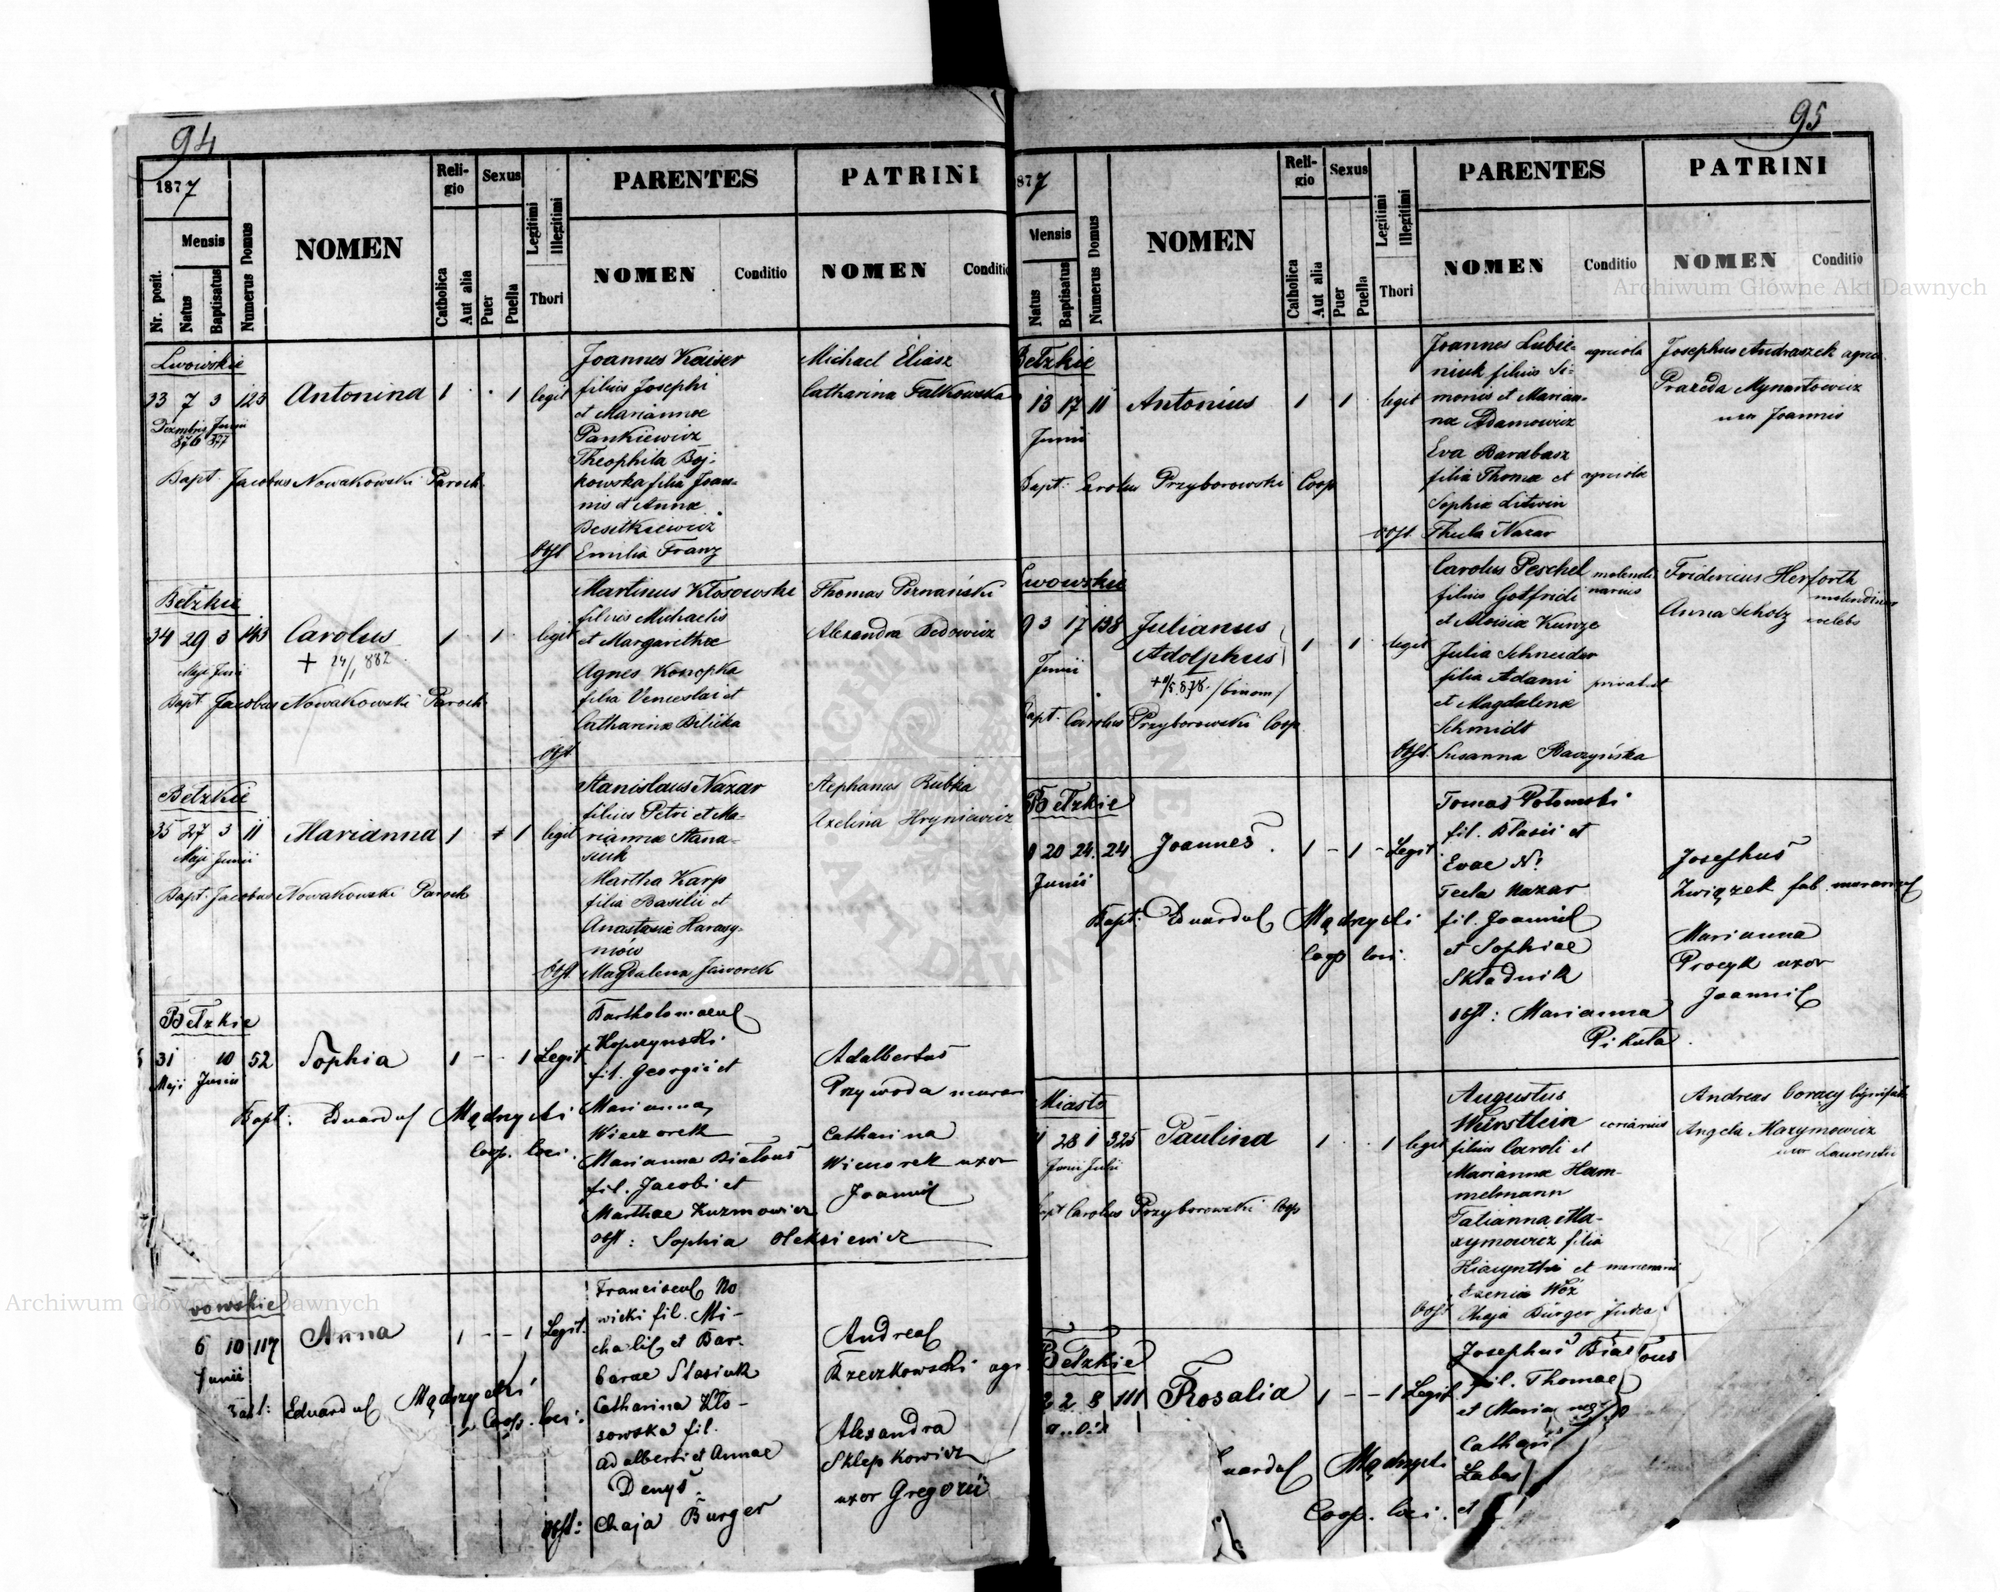 94
1877
Mensis
Nr. posit.
Natus
Baptisatus
Numerus Domus
NOMEN
Religio
Catholica
Aut alia
Sexus
Puer
Puella
Legitimi
Illegitimi
Thori
PARENTES
NOMEN
Conditio
PATRINI
NOMEN
Conditio
Lwowskie
33 7 3 123 Antonina 1 1 legit
Bapt Jacobus Nowakowski Paroch
Joannes Kaiser
filius Josephi
et Mariannæ
Pankiewicz
Theophila Boj-
kowska filia Joan-
nis et Annæ
Obst. Emilia Franz
Michael Eliasz
Catharina Falkowska
Bełzkie
34 29 3 143 Carolus 1 1 legit
Maji Junii
Bapt Jacobus Nowakowski Paroch
Martinus Kłosowski
filius Michaelis
et Margarethæ
Agnes Konopka
filia Venceslai et
Catharinæ Bilicka
Obst.
Thomas Poznański
Alexandra Fedowicz
Bełzkie
35 27 3 11 Marianna 1 1 legit
Maji Junii
Bapt. Jacobus Nowakowski Paroch
Stanislaus Nazar
filius Petri et Ma-
riannæ Stana-
siuk
Martha Karp
filia Basilii et
Anastasiæ Harasy-
mów
Obst. Magdalena Jaworek
Stephanus Rubka
Axelina Hryniewicz
Bełzkie
31 10 52 Sophia 1 - - 1 Legit
Maji Junii
Bapt: Eduardus Mądrzycki
Coop. loci.
Bartholomaeus
Kopczynski
fil. Georgii et
Marianna
Wieczorek
Marianna Białous
fil. Jacobi et
Marthae Kuzmowicz
obst: Sophia Oleksiewicz
Adalbertus
Przywoda murar
Catharina
Wieczorek uxor
Joannis
vowskie
6 10 117 Anna 1 - - 1 Legit.
Junii
Eduardus Mądrzycki
Coop. loci.
Franciscus No
wicki fil. Mi-
chalis et Bar-
barae Stasiuk
Catharina Kło-
sowska fil.
Adalberti et Annae
Denys.
obst: Chaja Burger
Andreas
Brzeczkowski agr
Alexandra
Sklepkowicz
uxor Gregorii
95
877
Mensis
Natus
Baptisatus
Numerus Domus
NOMEN
Religio
Catholica
Aut alia
Sexus
Puer
Puella
Legitimi
Illegitimi
Thori
PARENTES
NOMEN
Conditio
PATRINI
NOMEN
Conditio
Bełzkie
13 17 11 Antonius 1 1 legit
Junii
Bapt: Carolus Przyborowski Coop
Joannes Lubie- agricola
niuk filius Si-
monis et Marian-
næ Adamowicz
Eva Barabasz
filia Thomæ et agricola
Sophiæ Litwin
obst. Thecla Nazar
Josephus Andraszek agric
Prazeda Mynartowicz
uxor Joannis
Lwowskie
9 3 17 138 Julianus
Adolphus 1 1 legit
Junii
/binom/
Bapt. Carolus Przyborowski Coop
Carolus Peschel molendi
filius Gotfridi narius
et Aloisiæ Kunze
Julia Schneider
filia Adami privatist
et Magdalenæ
Schmidt
Obst. Susanna Baczyńska
Fridericus Herforth
molendinar
Anna Scholz cælebs
Bełzkie
20 24 24 Joannes 1 - 1 - Legit
Junii
Bapt: Eduardus Mądrzycki
Coop loci.
Tomas Potomski
fil. Blasii et
Evae N.
Tecla Nazar
fil. Joannis
et Sophiae
Składnik
obst: Marianna
Pikuta
Josephus
Związek fab. murarius
Marianna
Procyk uxor
Joannis
Miasto
28 1 325 Paulina 1 1 legit
Junii Julii
Bapt Carolus Przyborowski Coop
Augustus
Würstlein coriarius
filius Caroli et
Mariannæ Ham-
melmann
Tatianna Ma-
xymowicz filia
Hiacynthi et mercenarii
Xeniæ Wóz
Obst. Chaja Bürger Judæa
Andreas Coracy
Angela Maxymowicz
uxor Laurentii
Bełzkie
2 2 8 111 Rosalia 1 - - 1 Legit
uardus Mądrzycki
Coop. loci.
Josephus Białous
fil. Thomae
et Maria
Cathari
Labas
et
Archiwum Główne Akt Dawnych
Archiwum Główne Akt Dawnych